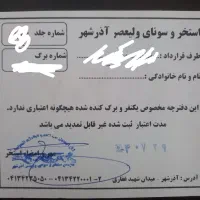 استخر و سونای ولیعصر آذرشهر
شماره جلد
طرف قرارداد :
شماره برگ
نام و نام خانوادگی :
این دفترچه مخصوص یکنفر و برگ کنده شده هیچگونه اعتباری ندارد.
مدت اعتبار ثبت شده غیر قابل تمدید می باشد
استخر
آدرس : آذرشهر - میدان شهید غفاری
۰۴۱۳۴۲۲۰۰۰۱-۲ - ۰۴۱۳۴۲۲۵۰۵۰